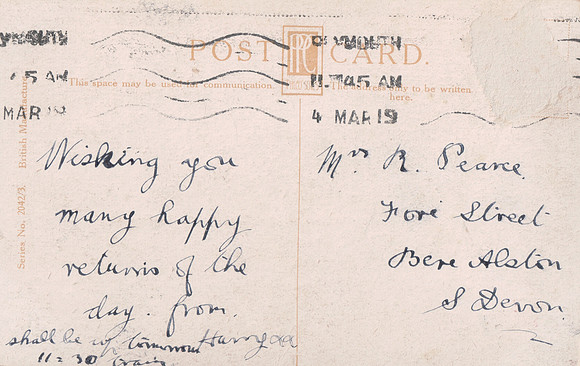 POST CARD.
PLYMOUTH
11.45 AM
4 MAR 19
5 AM
MAR 19
This space may be used for communication.
The address only to be written
here.
Series No. 2042/3. British Manufacture
Wishing you
many happy
returns of the
day. from
Harry xx
shall be up tomorrow
11=30 train
Mrs R. Pearce
Fore Street
Bere Alston
S Devon